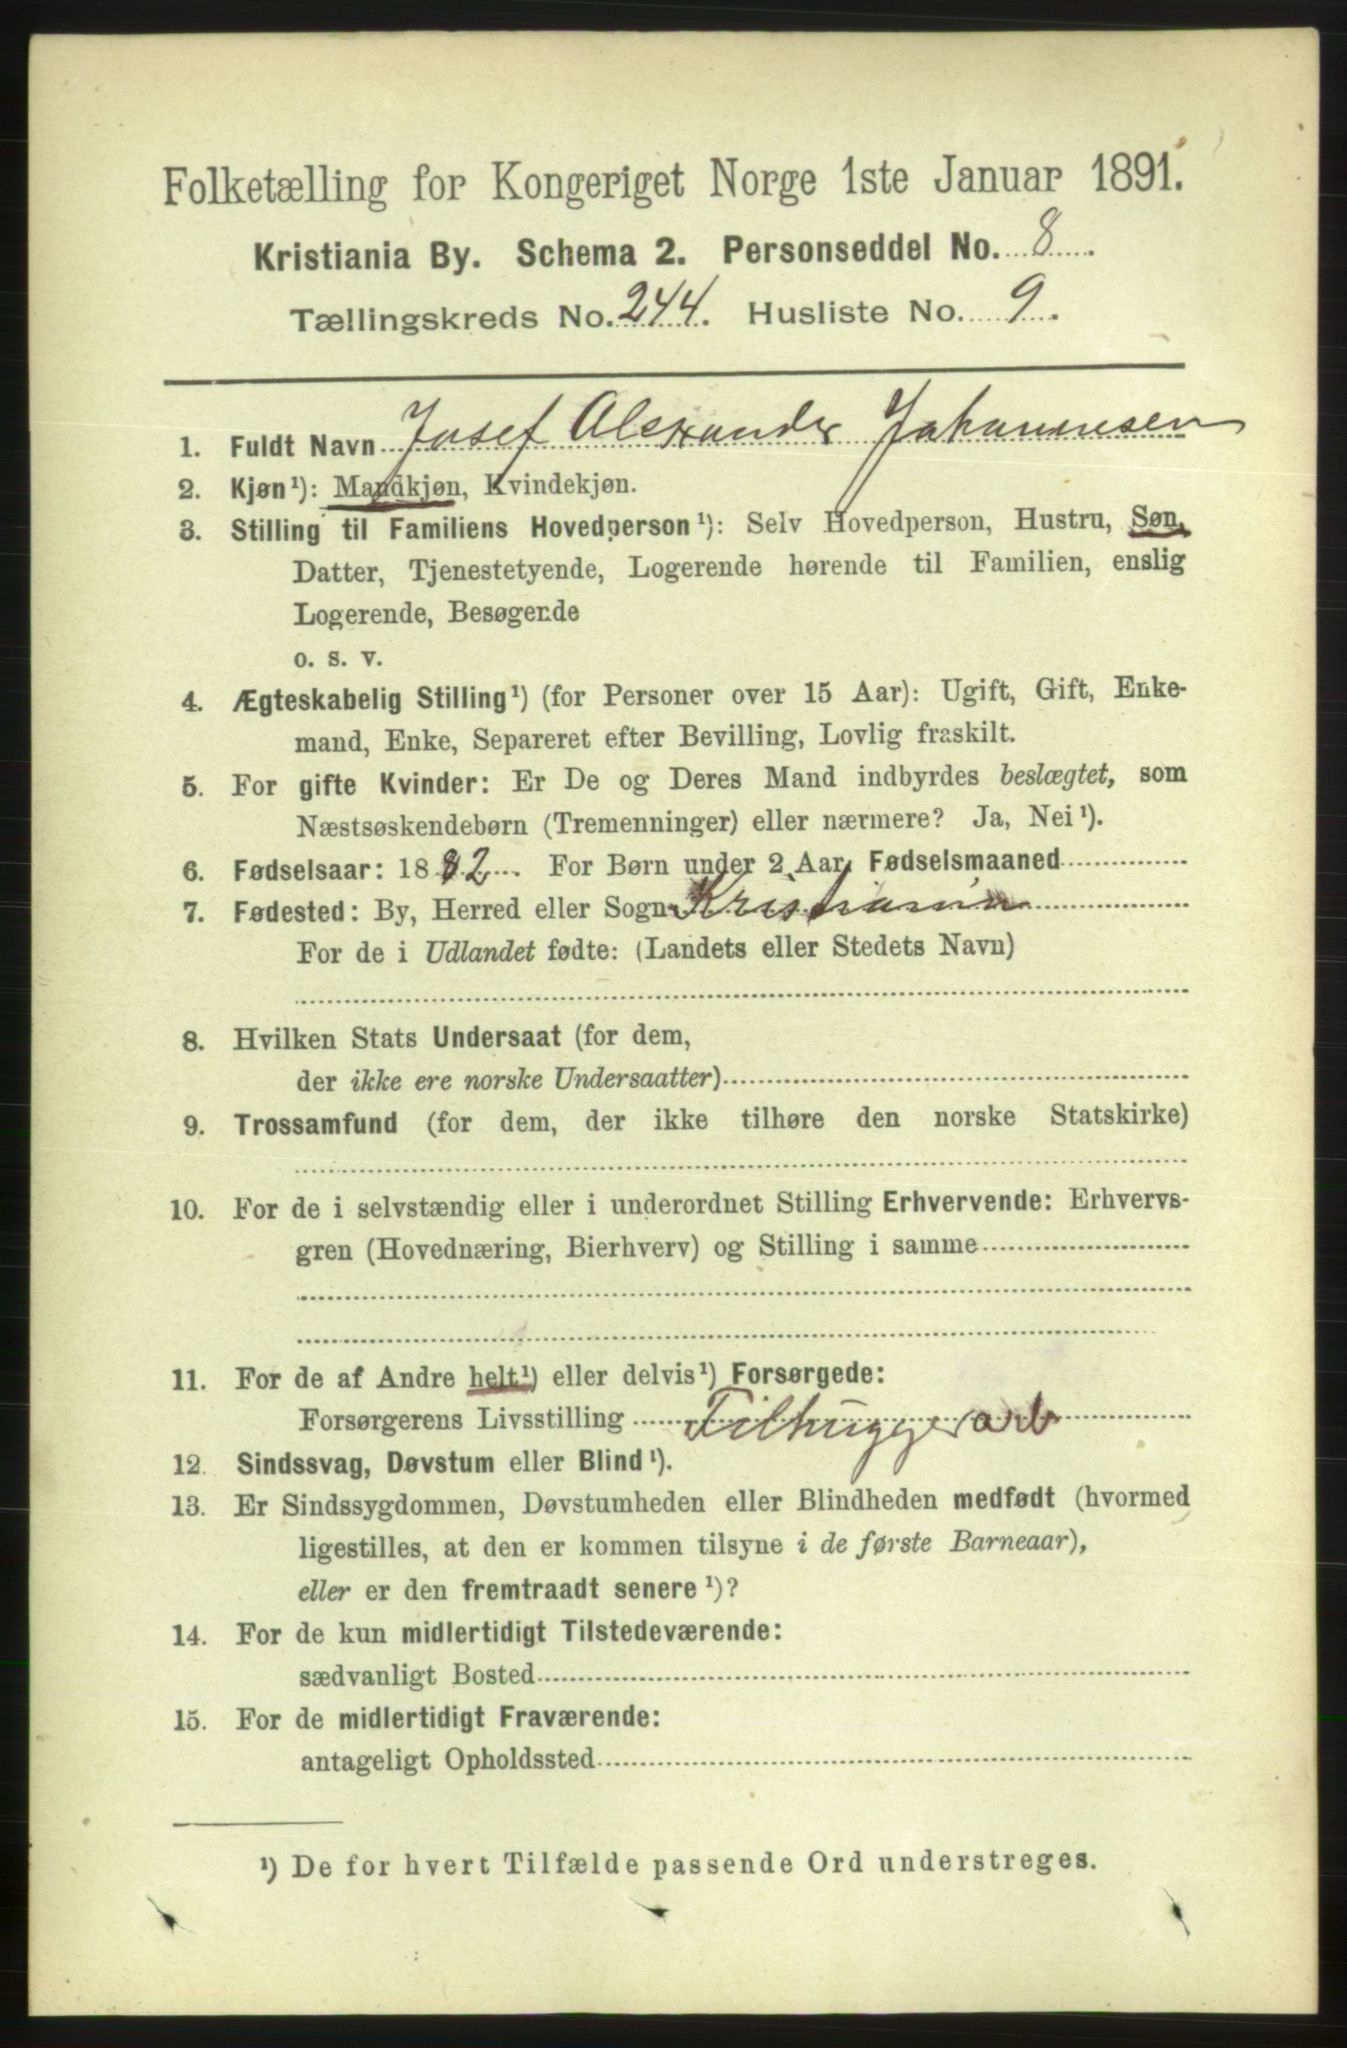 Folketælling for Kongeriget Norge 1ste Januar 1891.
Kristiania By. Schema 2. Personseddel No. 8
Tællingskreds No. 244. Husliste No. 9.
1. Fuldt Navn Josef Alexander Johannesen
2. Kjøn¹): Mandkjøn, Kvindekjøn.
3. Stilling til Familiens Hovedperson¹): Selv Hovedperson, Hustru, Søn,
Datter, Tjenestetyende, Logerende hørende til Familien, enslig
Logerende, Besøgende
o. s. v.
4. Ægteskabelig Stilling¹) (for Personer over 15 Aar): Ugift, Gift, Enke-
mand, Enke, Separeret efter Bevilling, Lovlig fraskilt.
5. For gifte Kvinder: Er De og Deres Mand indbyrdes beslægtet, som
Næstsøskendebørn (Tremenninger) eller nærmere? Ja, Nei¹).
6. Fødselsaar: 1882. For Børn under 2 Aar, Fødselsmaaned
7. Fødested: By, Herred eller Sogn Kristiania
For de i Udlandet fødte: (Landets eller Stedets Navn)
8. Hvilken Stats Undersaat (for dem,
der ikke ere norske Undersaatter)
9. Trossamfund (for dem, der ikke tilhøre den norske Statskirke)
10. For de i selvstændig eller i underordnet Stilling Erhvervende: Erhvervs-
gren (Hovednæring, Bierhverv) og Stilling i samme
11. For de af Andre helt¹) eller delvis¹) Forsørgede:
Forsørgerens Livsstilling Filhuggerarb
12. Sindssvag, Døvstum eller Blind¹).
13. Er Sindssygdommen, Døvstumheden eller Blindheden medfødt (hvormed
ligestilles, at den er kommen tilsyne i de første Barneaar),
eller er den fremtraadt senere¹)?
14. For de kun midlertidigt Tilstedeværende:
sædvanligt Bosted
15. For de midlertidigt Fraværende:
antageligt Opholdssted
¹) De for hvert Tilfælde passende Ord understreges.